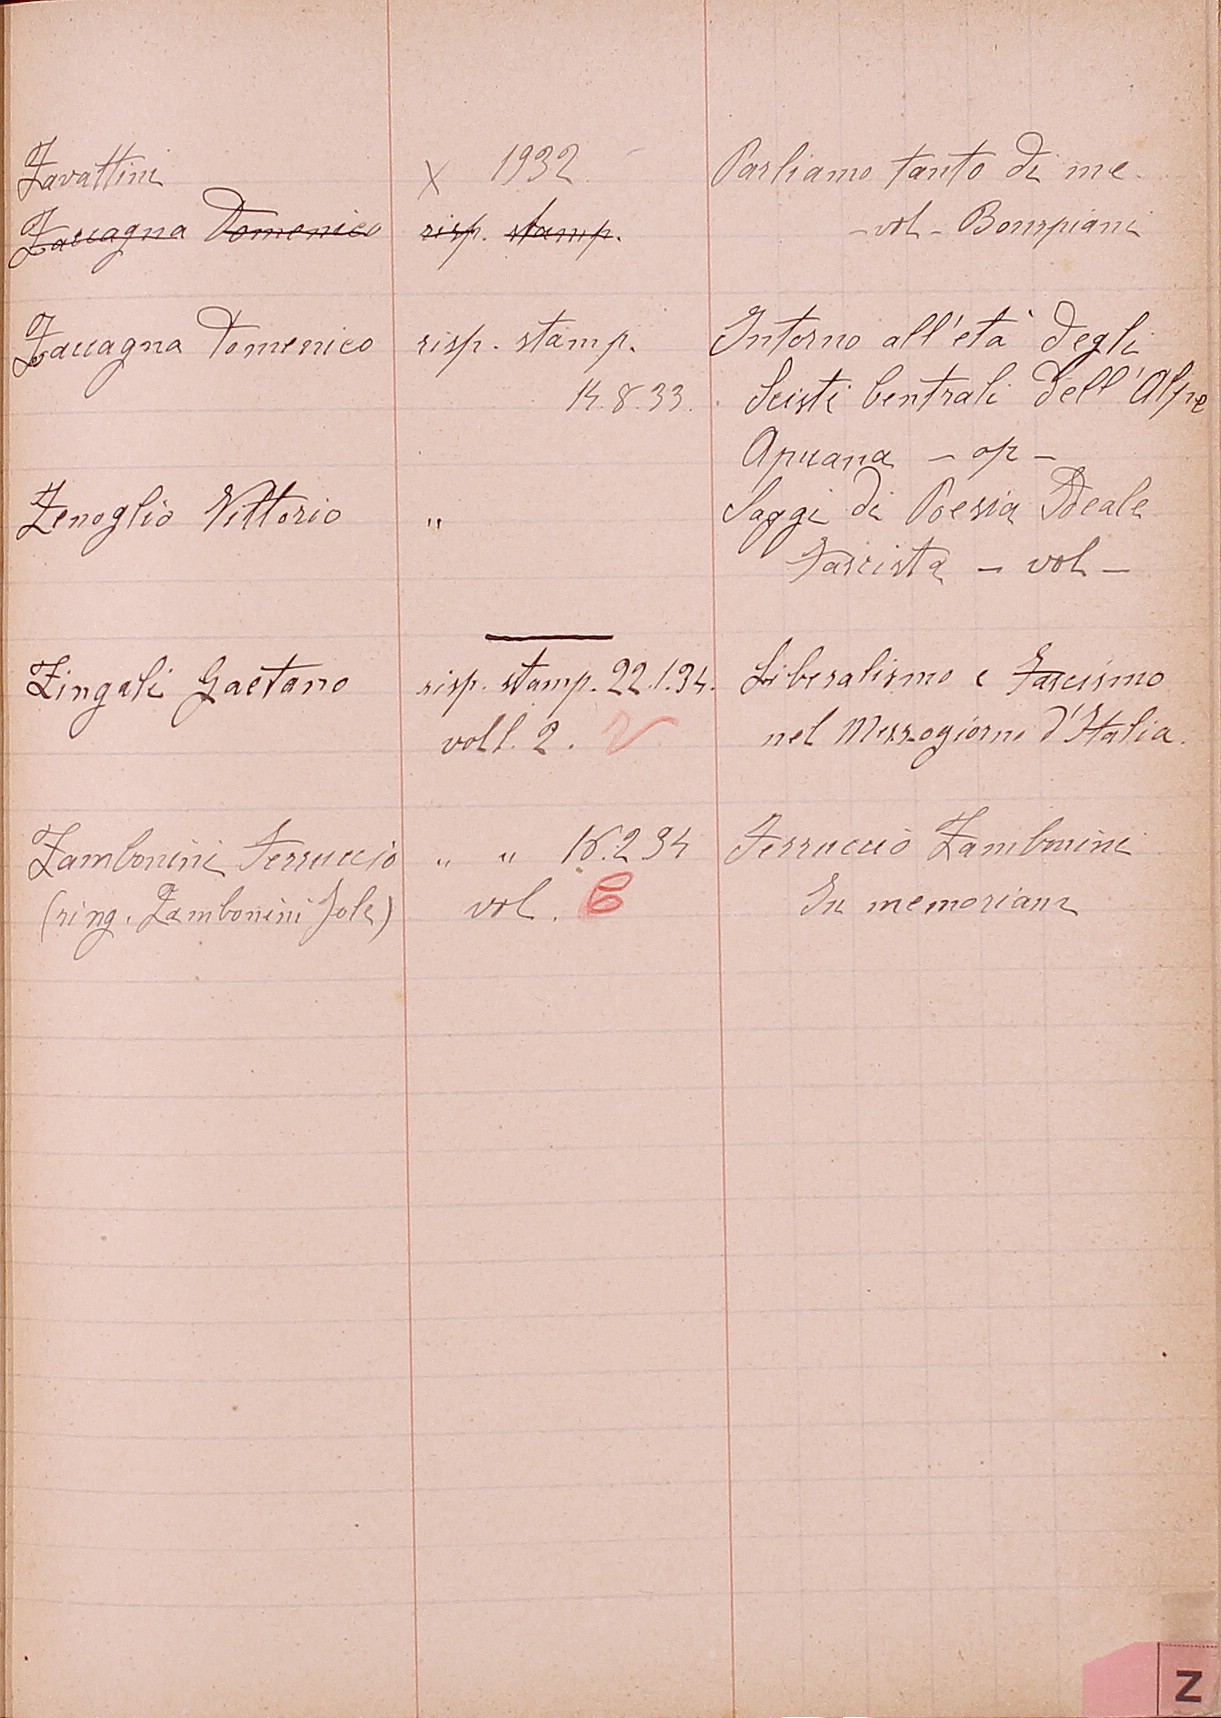 Zavattini X 1932 Parliamo tanto di me
Zaccagna Domenico risp. stamp. - vol - Bompiani
Zaccagna Domenico risp. stamp. Intorno all'età degli
14.8.33. Scisti Centrali dell'Alpe
Apuana - op -
Zenoglio Vittorio " Saggi di Poesia Ideale
Fascista - vol -
Zingali Gaetano risp. stamp. 22.1.34. Liberalismo e Fascismo
voll. 2. V nel Mezzogiorno d'Italia.
Zambonini Ferruccio " " 16.2.34 Ferruccio Zambonini
(ring. Zambonini Jole) vol. In memoriam
Z